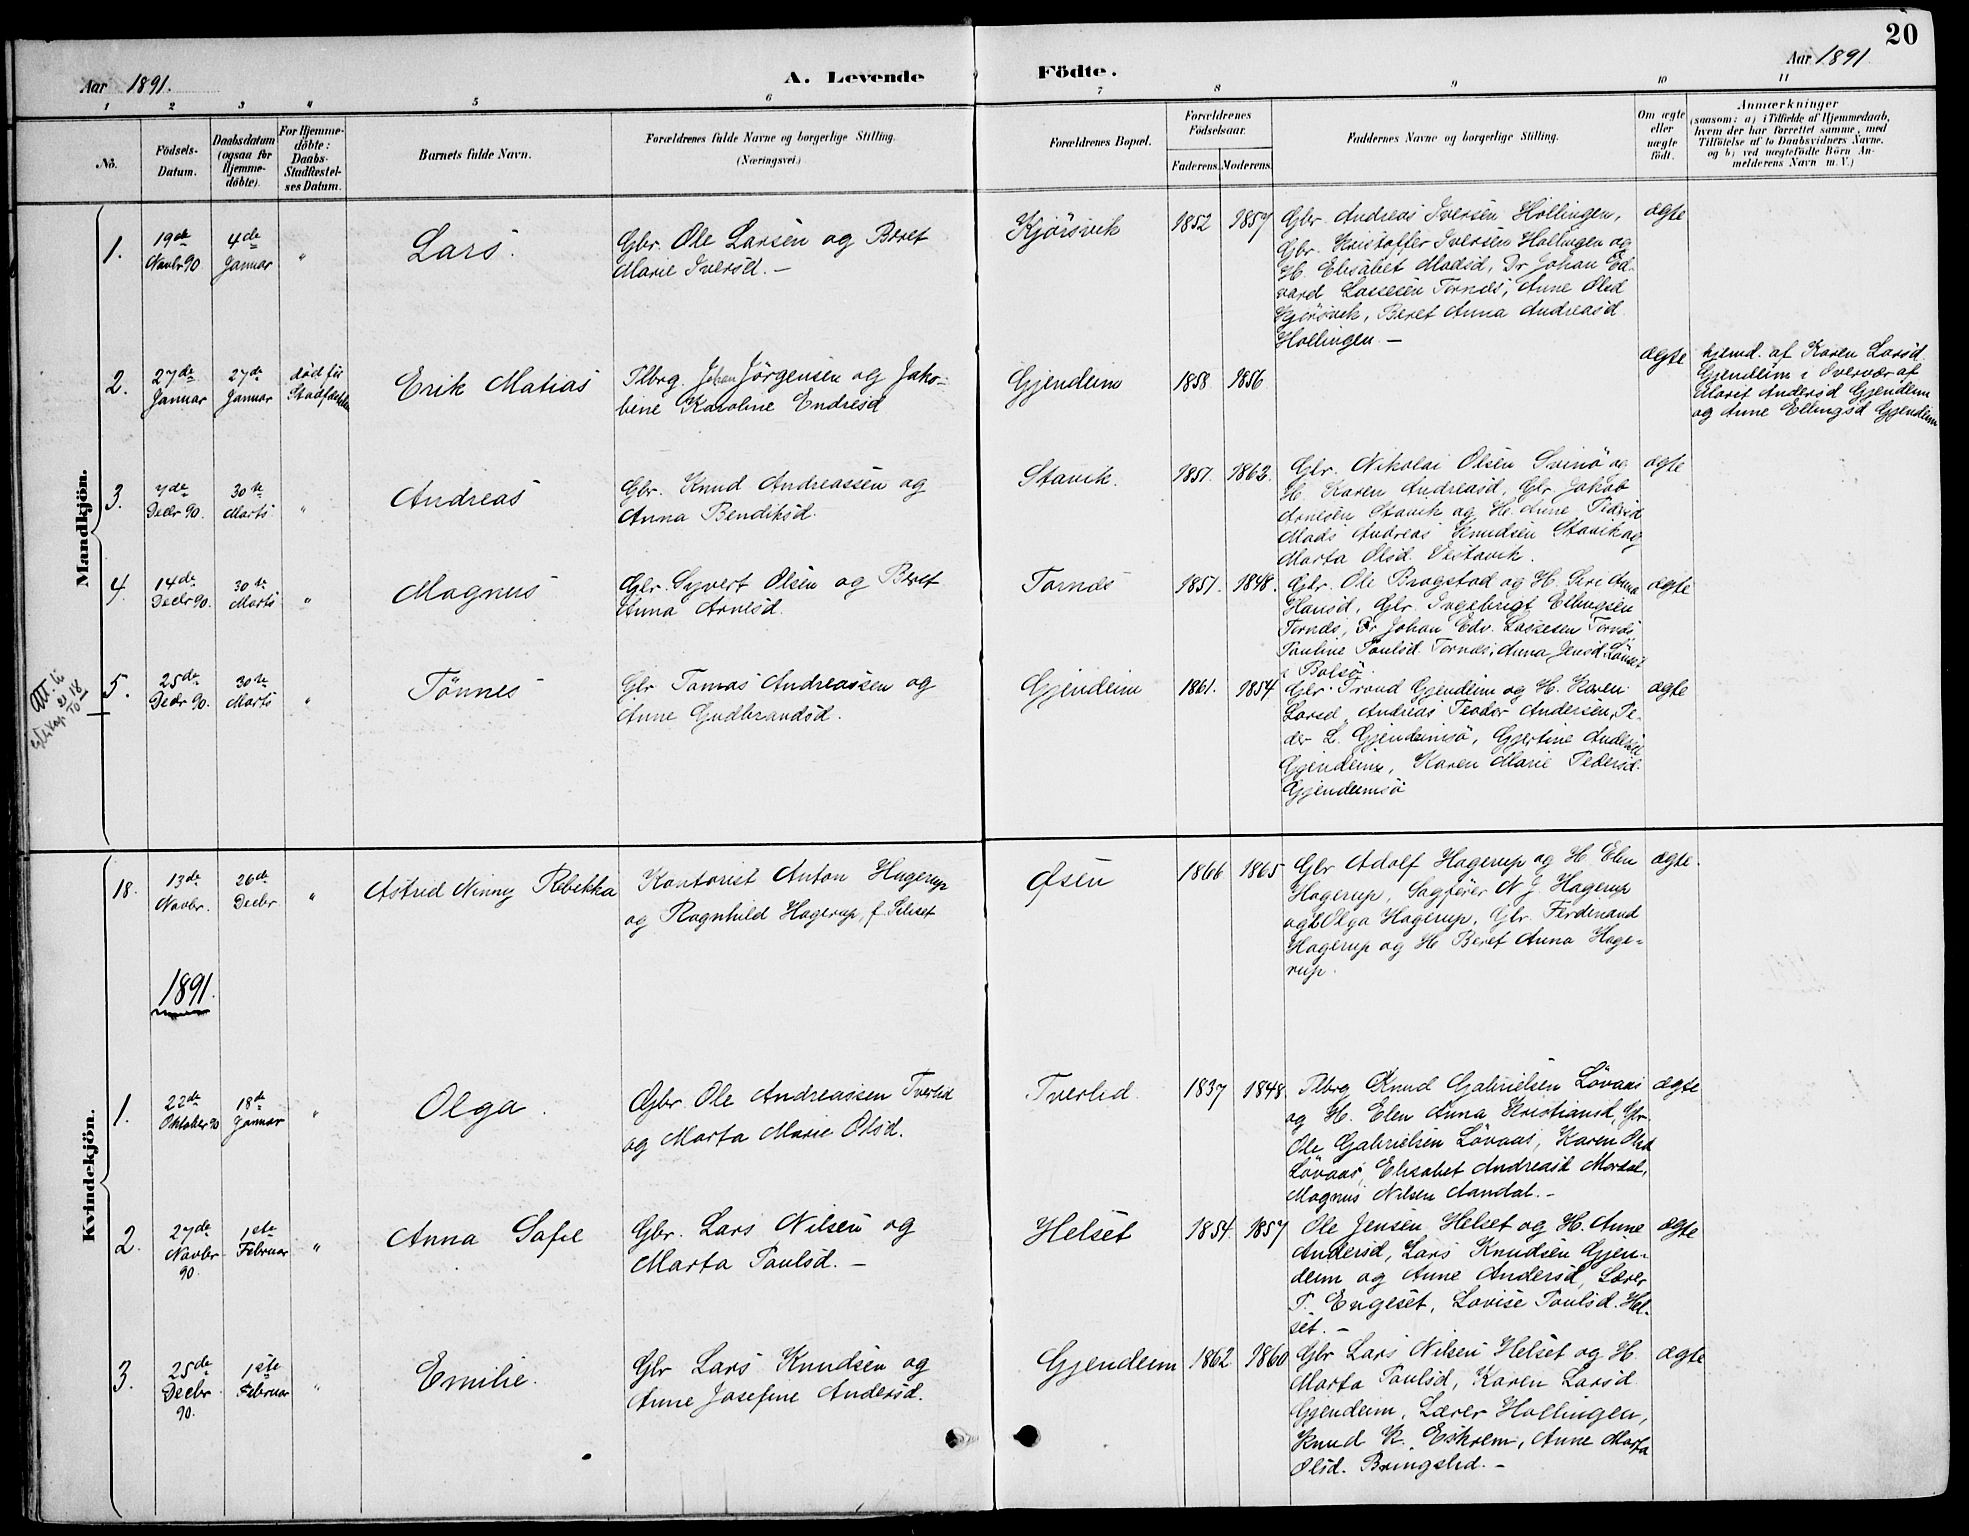 20
Aar 1891.
A. Levende
Födte.
Aar 1891
1 2 3 4 5 6 7 8 9 10 11
No.
Födsels-
Datum.
Daabsdatum
(ogsaa for
Hjemme-
döbte).
For Hjemme-
döbte:
Daabs-
Stadfæstel-
ses Datum.
Barnets fulde Navn.
Forældrenes fulde Navne og borgerlige Stilling.
(Næringsvei.)
Forældrenes Bopæl.
Forældrenes
Födselsaar.
Faderens. Moderens.
Faddernes Navne og borgerlige Stilling.
Om ægte
eller
uægte
födt.
Anmærkninger
(saasom: a) i Tilfælde af Hjemmedaab,
hvem der har forrettet samme, med
Tilföielse af to Daabsvidners Navne,
og b) ved uægtefödte Börn An-
melderens Navn m. V.)
Mandkjön.
1.
19de
Novbr 90
4de
Januar
"
Lars.
Gbr. Ole Larsen og Beret
Marie Iversd. —
Kjörsvik
1852
1857
Gbr. Andreas Iversen Hollingen,
Gbr. Kristoffer Iversen Hollingen og
H. Elisabet Madsd, Dr Johan Ed-
vard Lassesen Tornes, Anne Olsd
Kjörsvik, Beret Anna Andreasd.
Hollingen. —
ægte
2.
27de
Januar
27de
Januar
död før
Erik Matias
Plbrg. Johan Jörgensen og Jako-
bine Karoline Endresd
Gjendeim
1858
1856
ægte
hjemd. af Karen Larsd.
Gjendeim i Overvær af
Maret Andersd Gjendeim
og Anne Ellingsd Gjendeim
3.
7de
Decbr 90.
30te
Marts
"
Andreas
Gbr. Knud Andreassen og
Anna Bendiksd.
Stavik.
1851.
1862.
Gbr. Nikolai Olsen Svinö og
H. Karen Andreasd, Gbr. Jakob
Arnesen Stavik og H. Anne Pedersd
Mads Andreas Knudsen Stavik og
Marta Olsd. Vestavik.
ægte
4.
14de
Decbr 90.
30te
Marts
"
Magnus
Gbr. Syvert Olsen og Beret
Anna Arnesd.
Tornes
1851.
1848.
Gbr. Ole Brogstad og H. Seri Anna
Hansd, Gbr. Ingebrigt Ellingsen
Tornes, Dr Johan Edv. Lassesen Tornes
Pauline Poulsd. Tornes, Anna Jensd. Lönset
i Bolsö.
ægte
5.
25de
Decbr 90.
30te
Marts
"
Tönnes
Gbr. Tomas Andreassen og
Anne Gudbrandsd.
Gjendeim
1861.
1854
Gbr. Trond Gjendeim og H. Karen
Larsd, Andreas Teodor Andersen, Pe-
der L. Gjendeimsö, Gjertine Andersd
Gjendeim, Karen Marie Pedersd.
Gjendeimsö
ægte
Kvindekjön.
18.
13de
Novbr.
26de
Decbr
"
Astrid Ninny Rebekka
Kontorist Anton Hagerup
og Ragnhild Hagerup, f. Selset
Øsen
1866
1865
Gbr Adolf Hagerup og H. Elen
Hagerup, Sagförer N J Hagerup
og Olga Hagerup, Gbr. Ferdinand
Hagerup og H. Beret Anna Hage-
rup.
ægte.
1891.
1.
22de
Oktober 90
18de
Januar
"
Olga.
Gbr. Ole Andreassen Tverlid
og Marta Marie Olsd.
Tverlid.
1837
1848.
Plbrg Knud Gabrielsen Lövaas
og H. Elen Anna Kristiansd, Gbr
Ole Gabrielsen Lövaas, Karen Olsd
Lövaas, Elisabet Andreasd Mordal,
Magnus Nilsen Aandal. —
ægte
2.
27de
Novbr
90.
1ste
Februar
"
Anna Safie
Gbr. Lars Nilsen og
Marta Poulsd. —
Helset
1854.
1857
Ole Jensen Helset og H. Anne
Andersd, Lars Knudsen Gjen-
deim og Anne Andersd, Lærer
P. Engeset, Lovise Poulsd. Hel-
set. —
ægte
3.
25de
Decbr
90.
1ste
Februar
"
Emilie.
Gbr Lars Knudsen og
Anne Josefine Andersd.
Gjendeim
1862
1860
Gbr Lars Nilsen Helset og H.
Marta Poulsd, Karen Larsd.
Gjendeim, Lærer Hollingen,
Knud K. Eskrem, Anne Marta
Olsd. Bringslid. —
ægte